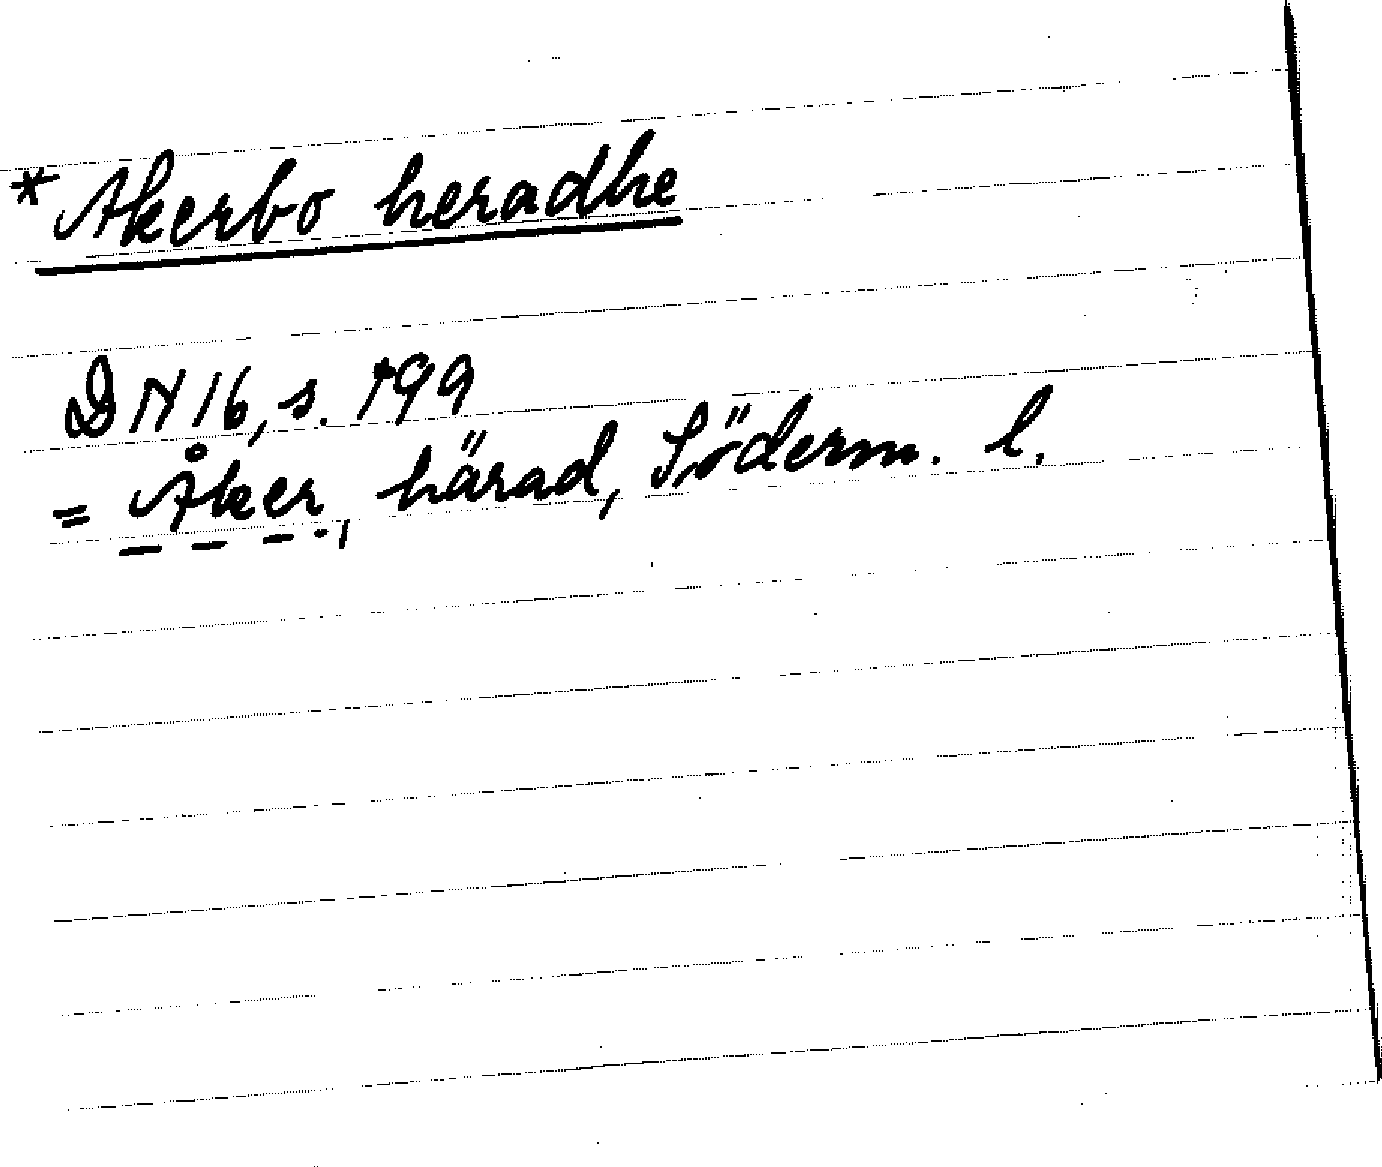 *Akerbo heradhe
DN 16, s. 199
= Åker, härad, Söderm. l.